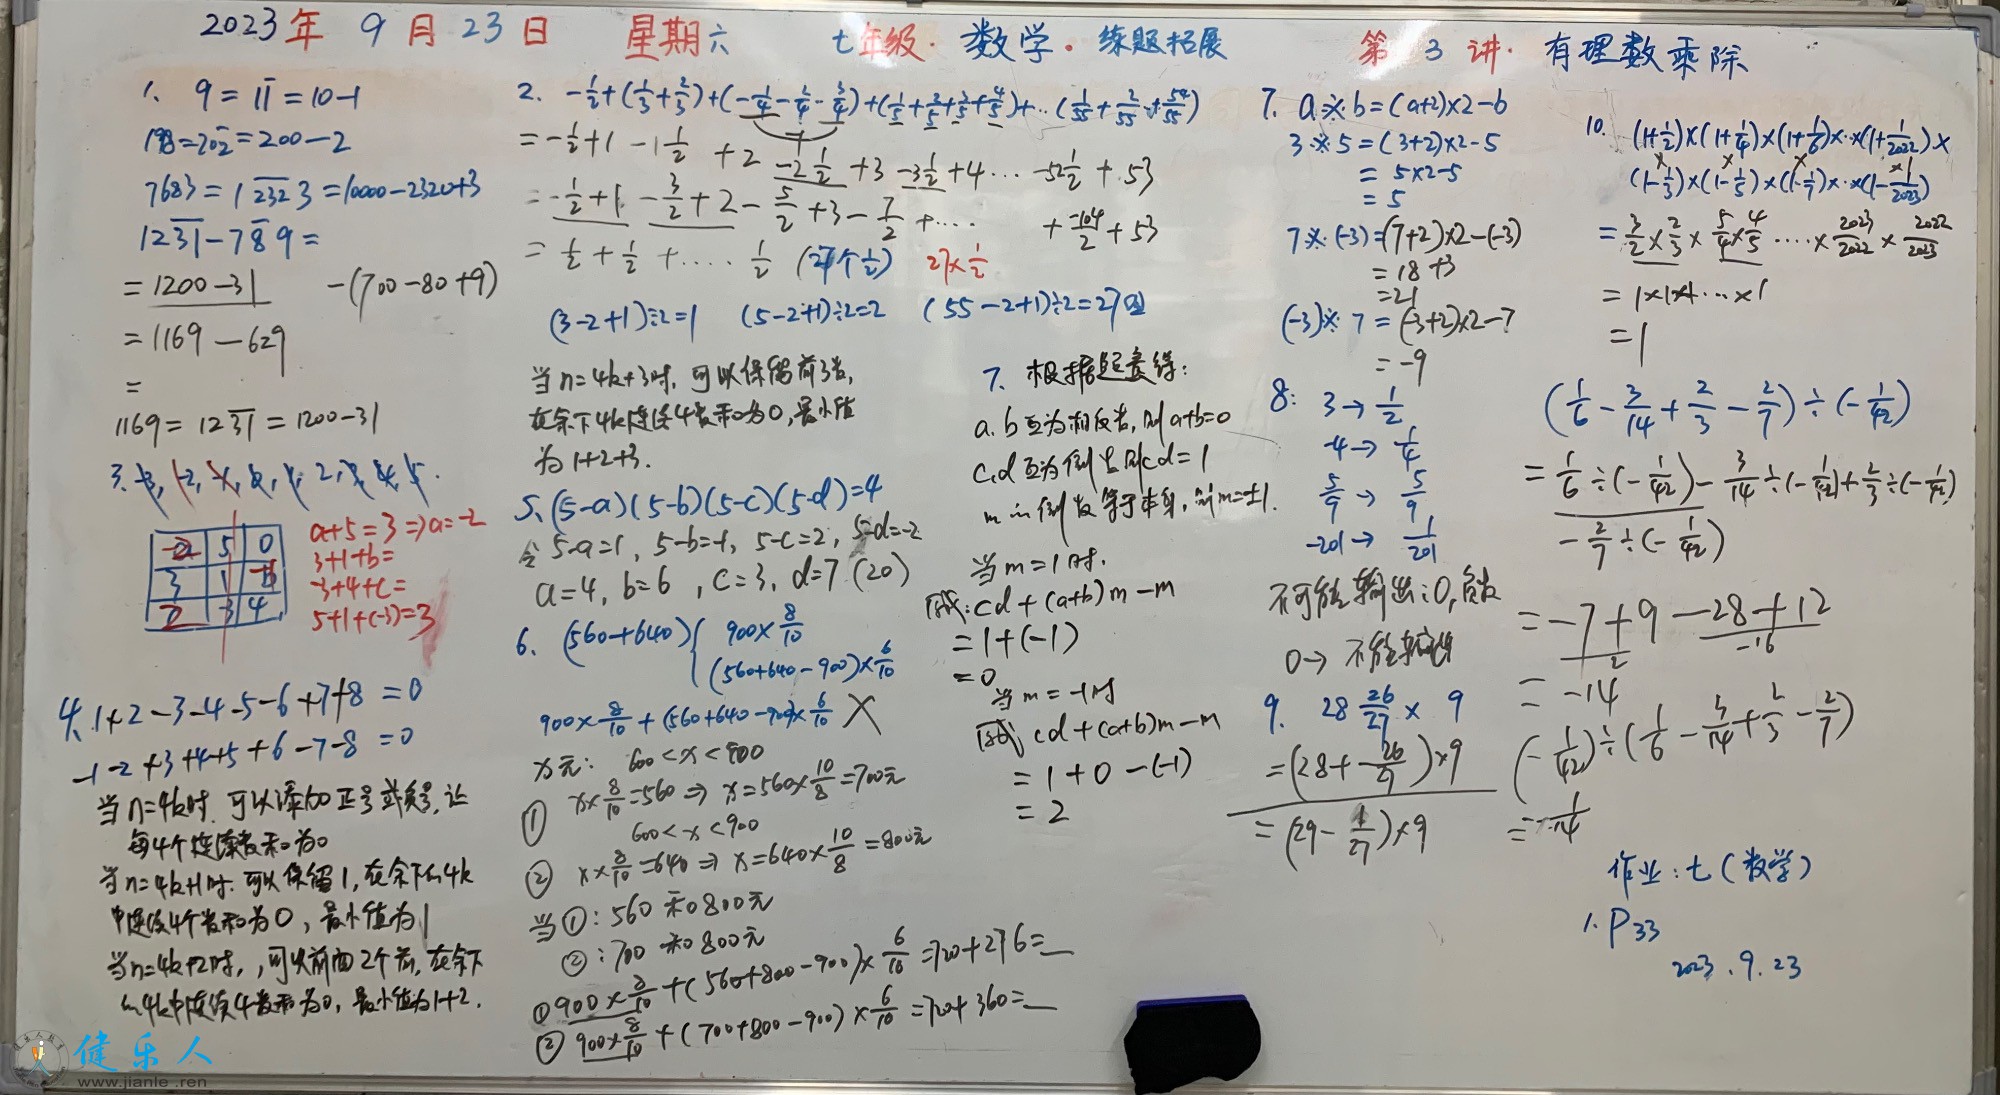 2023年 9月23日 星期六 七年级·数学·练题拓展 第3讲·有理数乘除
1. 9=11̅=10-1
198=202̅=200-2
7683=12̅3̅2̅3=10000-2320+3
123̅1̅-78̅9=
=1200-31 -(700-80+9)
=1169-629
=
1169=123̅1̅=1200-31
3. -3, -2, -1, 0, 1, 2, 3, 4, 5.
a 5 0
3 1 b
c -3 4
a+5=3⇒a=-2
3+1+b=
-3+4+c=
5+1+(-3)=3
4. 1+2-3-4-5-6+7+8=0
-1-2+3+4+5+6-7-8=0
当n=4k时,可以添加正号或负号,让
每4个连续数和为0
当n=4k+1时.可以保留1,在余下的4k
中连续4个数和为0,最小值为1
当n=4k+2时,,可以前面2个数,在余下
的4k中连续4数和为0,最小值为1+2.
2. -1/2+(1/3+2/3)+(-1/4-2/4-3/4)+(1/5+2/5+3/5+4/5)+…(1/55+2/55…+54/55)
=-1/2+1-1 1/2+2-2 1/2+3-3 1/2+4…-52 1/2+53
=-1/2+1-3/2+2-5/2+3-7/2+…. +-104/2+53
=1/2+1/2+…. 1/2 (27个1/2) 27×1/2
(3-2+1)÷2=1 (5-2+1)÷2=2 (55-2+1)÷2=27组
当n=4k+3时,可以保留前3数,
在余下4k连续4数和为0,最小值
为1+2+3.
5、(5-a)(5-b)(5-c)(5-d)=4
令5-a=1, 5-b=-1, 5-c=2, 5-d=-2
a=4, b=6, c=3, d=7 (20)
6. (560+640){900×8/10
(560+640-900)×6/10
900×8/10+(560+640-900)×6/10 ×
x元: 600<x<900
① x×8/10=560⇒x=560×10/8=700元
600<x<900
② x×8/10=640⇒x=640×10/8=800元
当①:560和800元
②:700和800元
①900×8/10+(560+800-900)×6/10=720+276=__
②900×8/10+(700+800-900)×6/10=720+360=__
7. 根据题意得:
a.b互为相反数,则a+b=0
c,d互为倒数则cd=1
m的倒数等于本身,则m=±1.
当m=1时.
原式:cd+(a+b)m-m
=1+(-1)
=0
当m=-1时
原式 cd+(a+b)m-m
=1+0-(-1)
=2
7. a※b=(a+2)×2-b
3※5=(3+2)×2-5
=5×2-5
=5
7※(-3)=(7+2)×2-(-3)
=18+3
=21
(-3)※7=(-3+2)×2-7
=-9
8: 3→1/2
-4→1/4
5/9→5/9
-201→1/201
不可能输出:0,负数
0→不能输出
9. 28 26/27×9
=(28+26/27)×9
=(29-1/27)×9
10. (1+1/2)×(1+1/4)×(1+1/6)×…×(1+1/2022)×
(1-1/3)×(1-1/5)×(1-1/7)×…×(1-1/2023)
=3/2×2/3×5/4×4/5….×2023/2022×2022/2023
=1×1×1…×1
=1
(1/6-3/14+2/3-2/7)÷(-1/42)
=1/6÷(-1/42)-3/14÷(-1/42)+2/3÷(-1/42)
-2/7÷(-1/42)
=-7+9-28+12
2 -16
=-14
(-1/42)÷(1/6-3/14+2/3-2/7)
=-1/14
作业:七(数学)
1. P33
2023.9.23
健乐人
www.jianle.ren